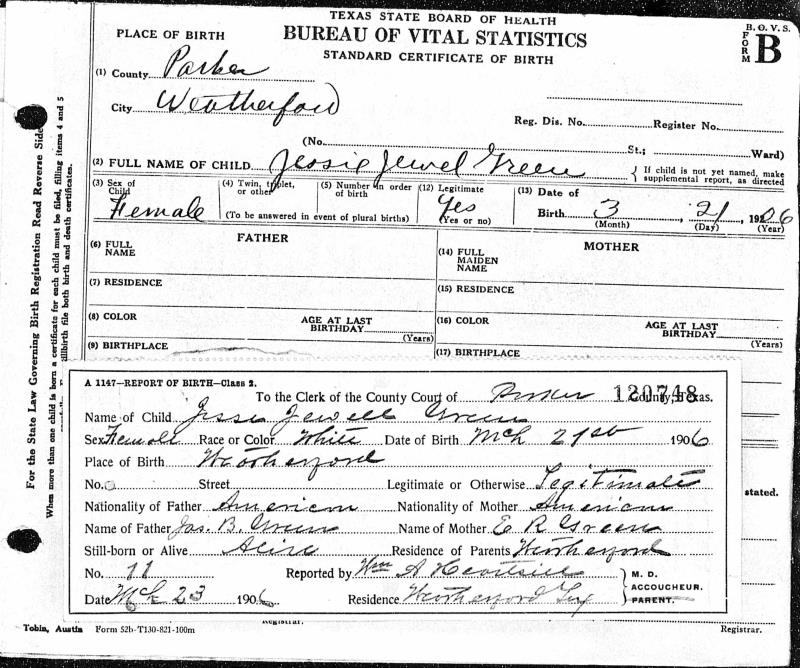 TEXAS STATE BOARD OF HEALTH
B. O. V. S.
PLACE OF BIRTH
BUREAU OF VITAL STATISTICS
FORM B
STANDARD CERTIFICATE OF BIRTH
(1) County Parker
City Weatherford
Reg. Dis. No. Register No.
(No. St.; Ward)
(2) FULL NAME OF CHILD Jessie Jewel Green { If child is not yet named, make supplemental report, as directed
(3) Sex of Child Female
(4) Twin, triplet, or other
(5) Number in order of birth
(To be answered in event of plural births)
(12) Legitimate Yes (Yes or no)
(13) Date of Birth 3 (Month), 21 (Day), 1906 (Year)
FATHER
MOTHER
(6) FULL NAME
(14) FULL MAIDEN NAME
(7) RESIDENCE
(15) RESIDENCE
(8) COLOR AGE AT LAST BIRTHDAY (Years)
(16) COLOR AGE AT LAST BIRTHDAY (Years)
(9) BIRTHPLACE
(17) BIRTHPLACE
A 1147—REPORT OF BIRTH—Class 2.
To the Clerk of the County Court of Parker County, Texas.
120748
Name of Child Jesse Jewell Green
Sex Female Race or Color White Date of Birth Mch 21st 1906
Place of Birth Weatherford
No. Street Legitimate or Otherwise Legitimate
Nationality of Father American Nationality of Mother American
Name of Father Jas. B. Green Name of Mother E R Green
Still-born or Alive Alive Residence of Parents Weatherford
No. 11 Reported by Wm A } M. D. ACCOUCHEUR. PARENT.
Date Mch 23 1906 Residence Weatherford Tex
stated.
Registrar.
Tobin, Austin Form 52b-T130-821-100m
Registrar.
For the State Law Governing Birth Registration Read Reverse Side
When more than one child is born a certificate for each child must be filed, filling items 4 and 5
stillbirth file both birth and death certificates.